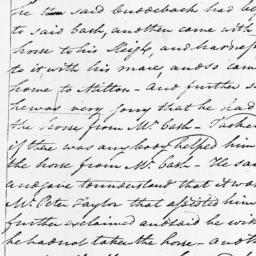 He then said Cuddeback had be
to said Cash, another came with
horse to his Sleigh, and harness
to it with his mare, and so came
home to Milton - and further s
he was very sorry that he had
the horse from Mr. Cash - I asked
if there was any body helped him
the horse from Mr. Cash - He sai
and gave to understand that it was
Mr. Peter Taylor that assisted him
further exclaimed and said he wish
he had not taken the horse - and th